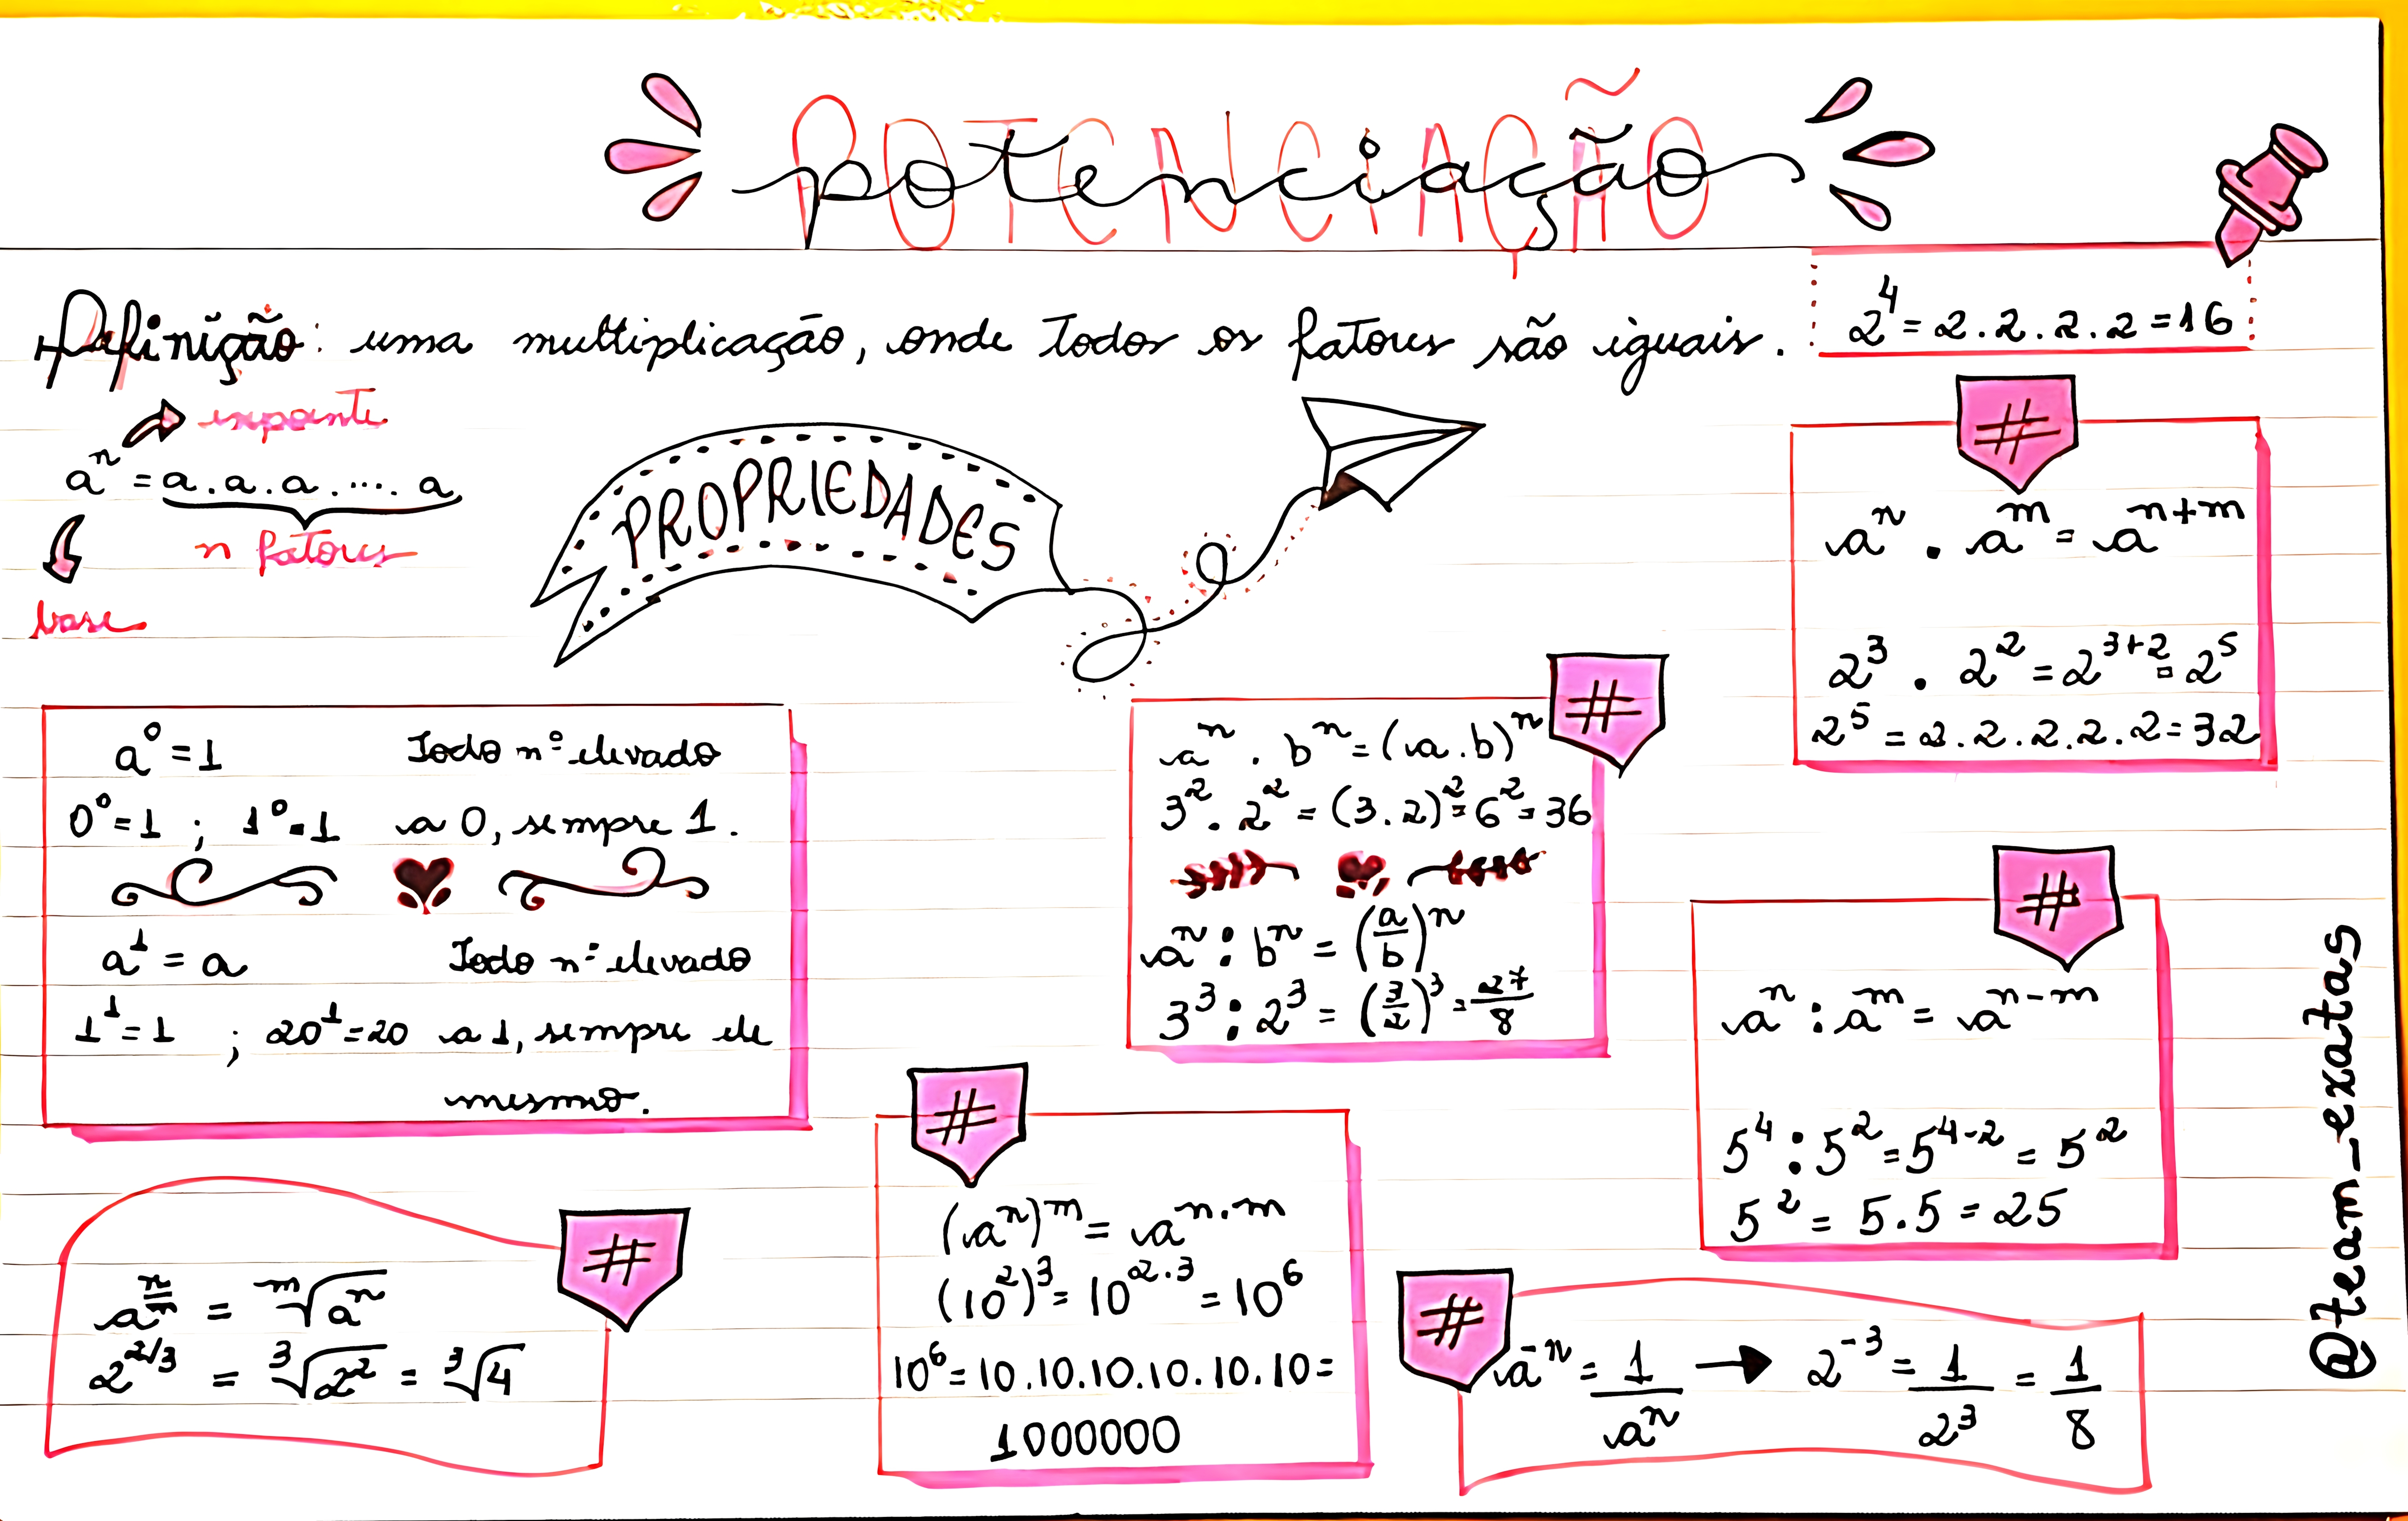 potenciação
Definição: uma multiplicação, onde todos os fatores são iguais.
2⁴ = 2.2.2.2 = 16
expoente
aⁿ = a.a.a. ... . a
n fatores
base
PROPRIEDADES
#
aⁿ . aᵐ = aⁿ⁺ᵐ
2³ . 2² = 2³⁺² = 2⁵
2⁵ = 2.2.2.2.2 = 32
a⁰ = 1 Todo nº elevado
0⁰ = 1 ; 1⁰ = 1 a 0, sempre 1.
a¹ = a Todo nº elevado
1¹ = 1 ; 20¹ = 20 a 1, sempre ele
mesmo.
#
aⁿ . bⁿ = (a.b)ⁿ
3² . 2² = (3.2)² = 6² = 36
aⁿ : bⁿ = (a/b)ⁿ
3³ : 2³ = (3/2)³ = 27/8
#
aⁿ : aᵐ = aⁿ⁻ᵐ
5⁴ : 5² = 5⁴⁻² = 5²
5² = 5.5 = 25
#
a^(n/m) = ᵐ√aⁿ
2^(2/3) = ³√2² = ³√4
#
(aⁿ)ᵐ = a^(n.m)
(10²)³ = 10^(2.3) = 10⁶
10⁶ = 10.10.10.10.10.10 =
1000000
#
a⁻ⁿ = 1/aⁿ → 2⁻³ = 1/2³ = 1/8
@team_exatas